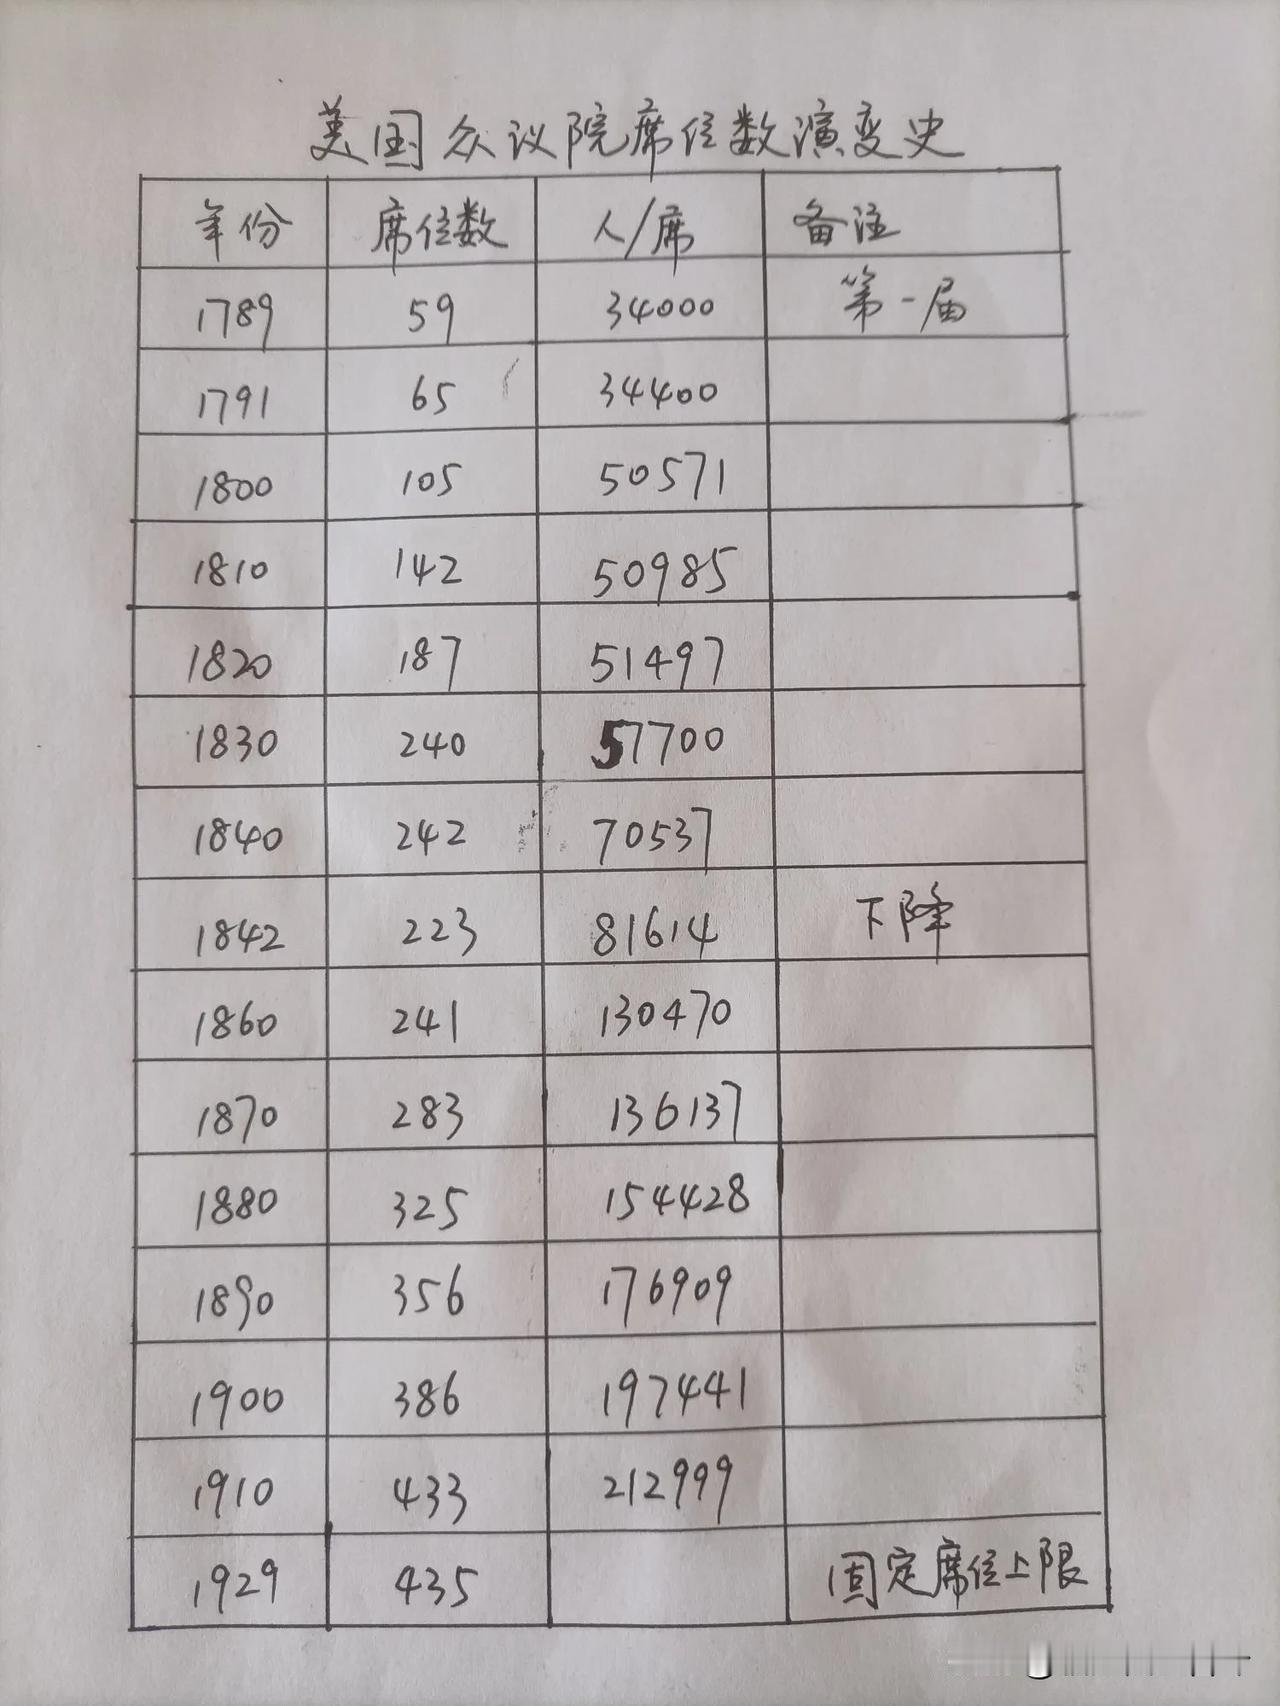 美国众议院席位数演变史
年份 席位数 人/席 备注
1789 59 34000 第一届
1791 65 34400
1800 105 50571
1810 142 50985
1820 187 51497
1830 240 57700
1840 242 70537
1842 223 81614 下降
1860 241 130470
1870 283 136137
1880 325 154428
1890 356 176909
1900 386 197441
1910 433 212999
1929 435 固定席位上限